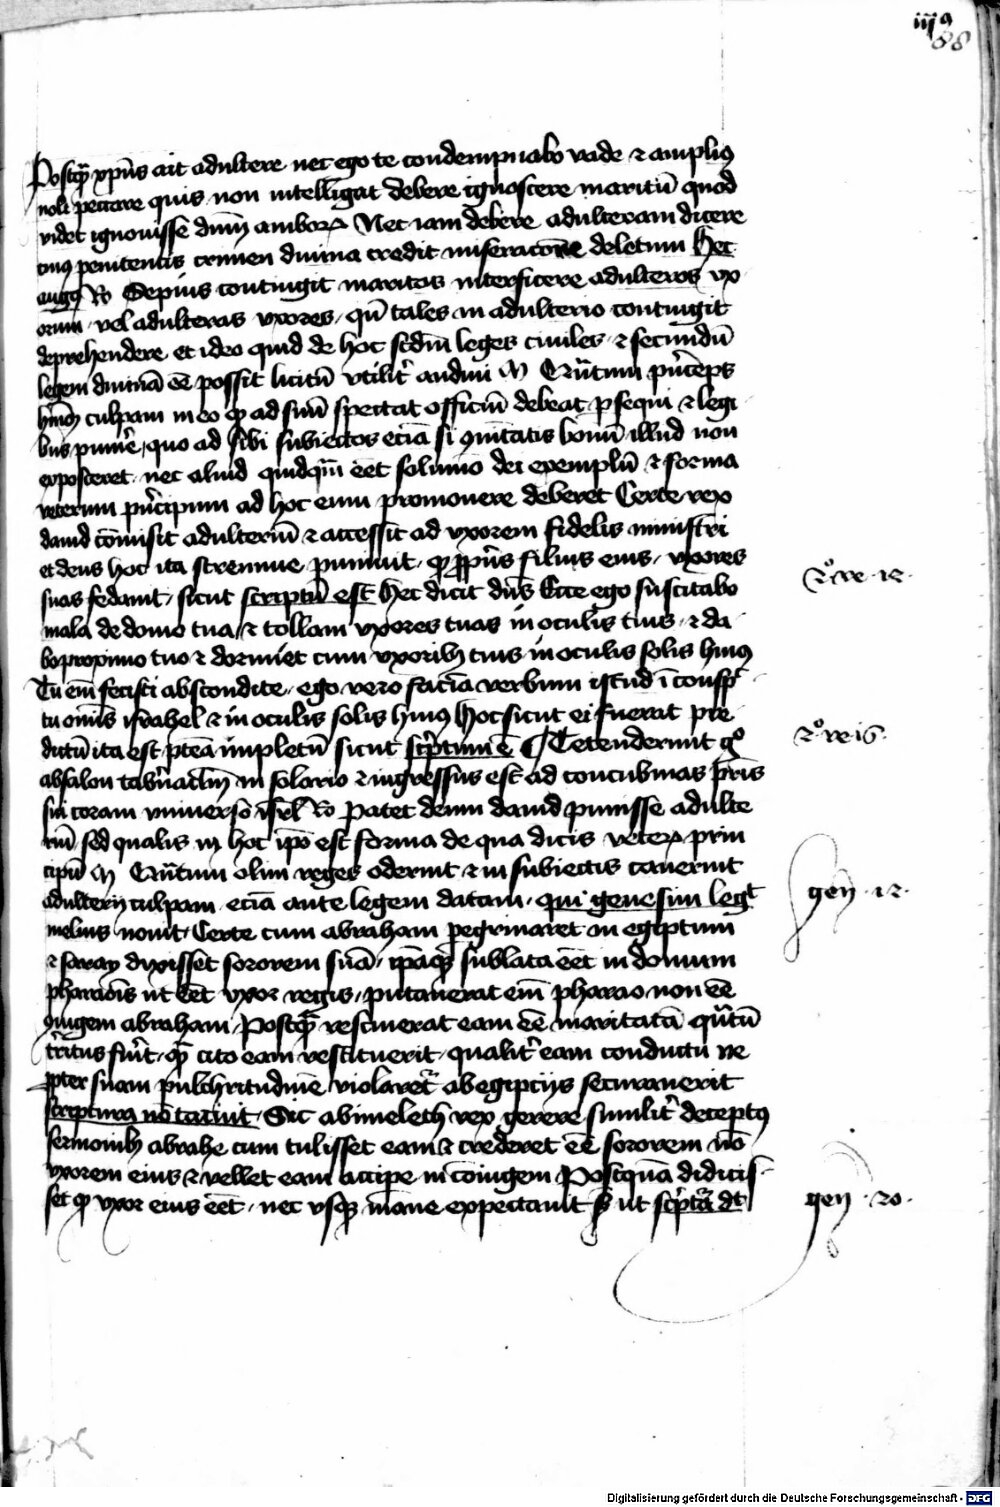 iiij 9
88
Postqᷓ xp̄us ait adultere nec ego te condempnabo vade ⁊ amplius
noli peccare quis non intelligat debere ignoscere maritū quod
videt ignouisse dnm̄ amboꝝ Nec iam debere adulteram dicere
cuius penitentis crimen diuina credit miseracōne deletum Hec
augꝰ Ro Sepius contingit maritos interficere adulteros vx
orum vel adulteras vxores, qn̄ tales in adulterio contingit
deprehendere et ideo quid de hoc scdm̄ leges ciuiles ⁊ secundū
legem diuinā eē possit licitū vtilit᷑ audiui M Qūtum prīceps
hmōi culpam in eo ꝙ ad suū spectat officiū debeat ꝑsequi ⁊ legi
bus punir̄e, quo ad sibi subiectos eciā si ꝯuītatis bonū illud non
exposceret nec aliud quidqm̄ eēt solūmo dei exemplū ⁊ forma
veterum prīcipum ad hoc eum promouere deberet Certe rex
dauid cōmisit adulteriū ⁊ accessit ad vxorem fidelis ministri
et deus hoc ita strenue puniuit ꝙ ꝓpr̄us filius eius vxores
suas fedauit, sicut scriptū est Hec dicit dūs Ecce ego suscitabo
mala de domo tua, ⁊ tollam vxores tuas in oculis tuis ⁊ da
bo proximo tuo ⁊ dormiet cum vxoribꝫ tuis in oculis solis huiꝰ
Tu em̄ fecisti abscondite, ego vero faciā verbum istud ī consp̄c
tu om̄is israhel ⁊ in oculis solis huiꝰ Hoc sicut ei fuerat pre
dictū ita est pᷤtea impletū sicut scp̄tum ē Tetenderunt gͦ
absalon tabn̄aclm̄ in solario ⁊ ingressus est ad concubinas prīs
sui coram vniuerso isrl̄ Ro Patet deum dauid punisse adulte
riū sed qualis in hoc ip̄o est forma de qua dicis veteꝝ prin
cipū M Qūtum olim reges oderint ⁊ in subiectis cauerint
adulterij culpam eciā ante legem datam, qui genesim legͭ
melius nouit, Certe cum abraham peregrinaret in egiptum
⁊ saray dixisset sororem suā, ip̄aqꝫ sublata eēt in domum
pharaōis ut eēt vxor regis, putauerat em̄ pharao non eē
ꝯiugem abraham, Postqᷓ resciuerat eam eē maritatā qūtū
tr̄itus fuīt, qᷓ cito eam restituerit, qualit᷑ eam conductu ne
ꝓpter suam pulchritudinē violaret᷑ ab egipcijs securauerit
scriptura nō tacuit, Sic abimelech rex gerere similit᷑ deceptus
sermonibꝫ abrahe cum tulisset eam ⁊ crederet eē sororem nō
vxorem eius ⁊ vellet eam accipe in cōiugem Postquā didicis
set ꝙ vxor eius eēt, nec vsqꝫ mane expectauit sꝫ ut scp̄tā dt̄
2ͦ re 12
2ͦ re 16
gen 12
gen 20
Digitalisierung gefördert durch die Deutsche Forschungsgemeinschaft - DFG